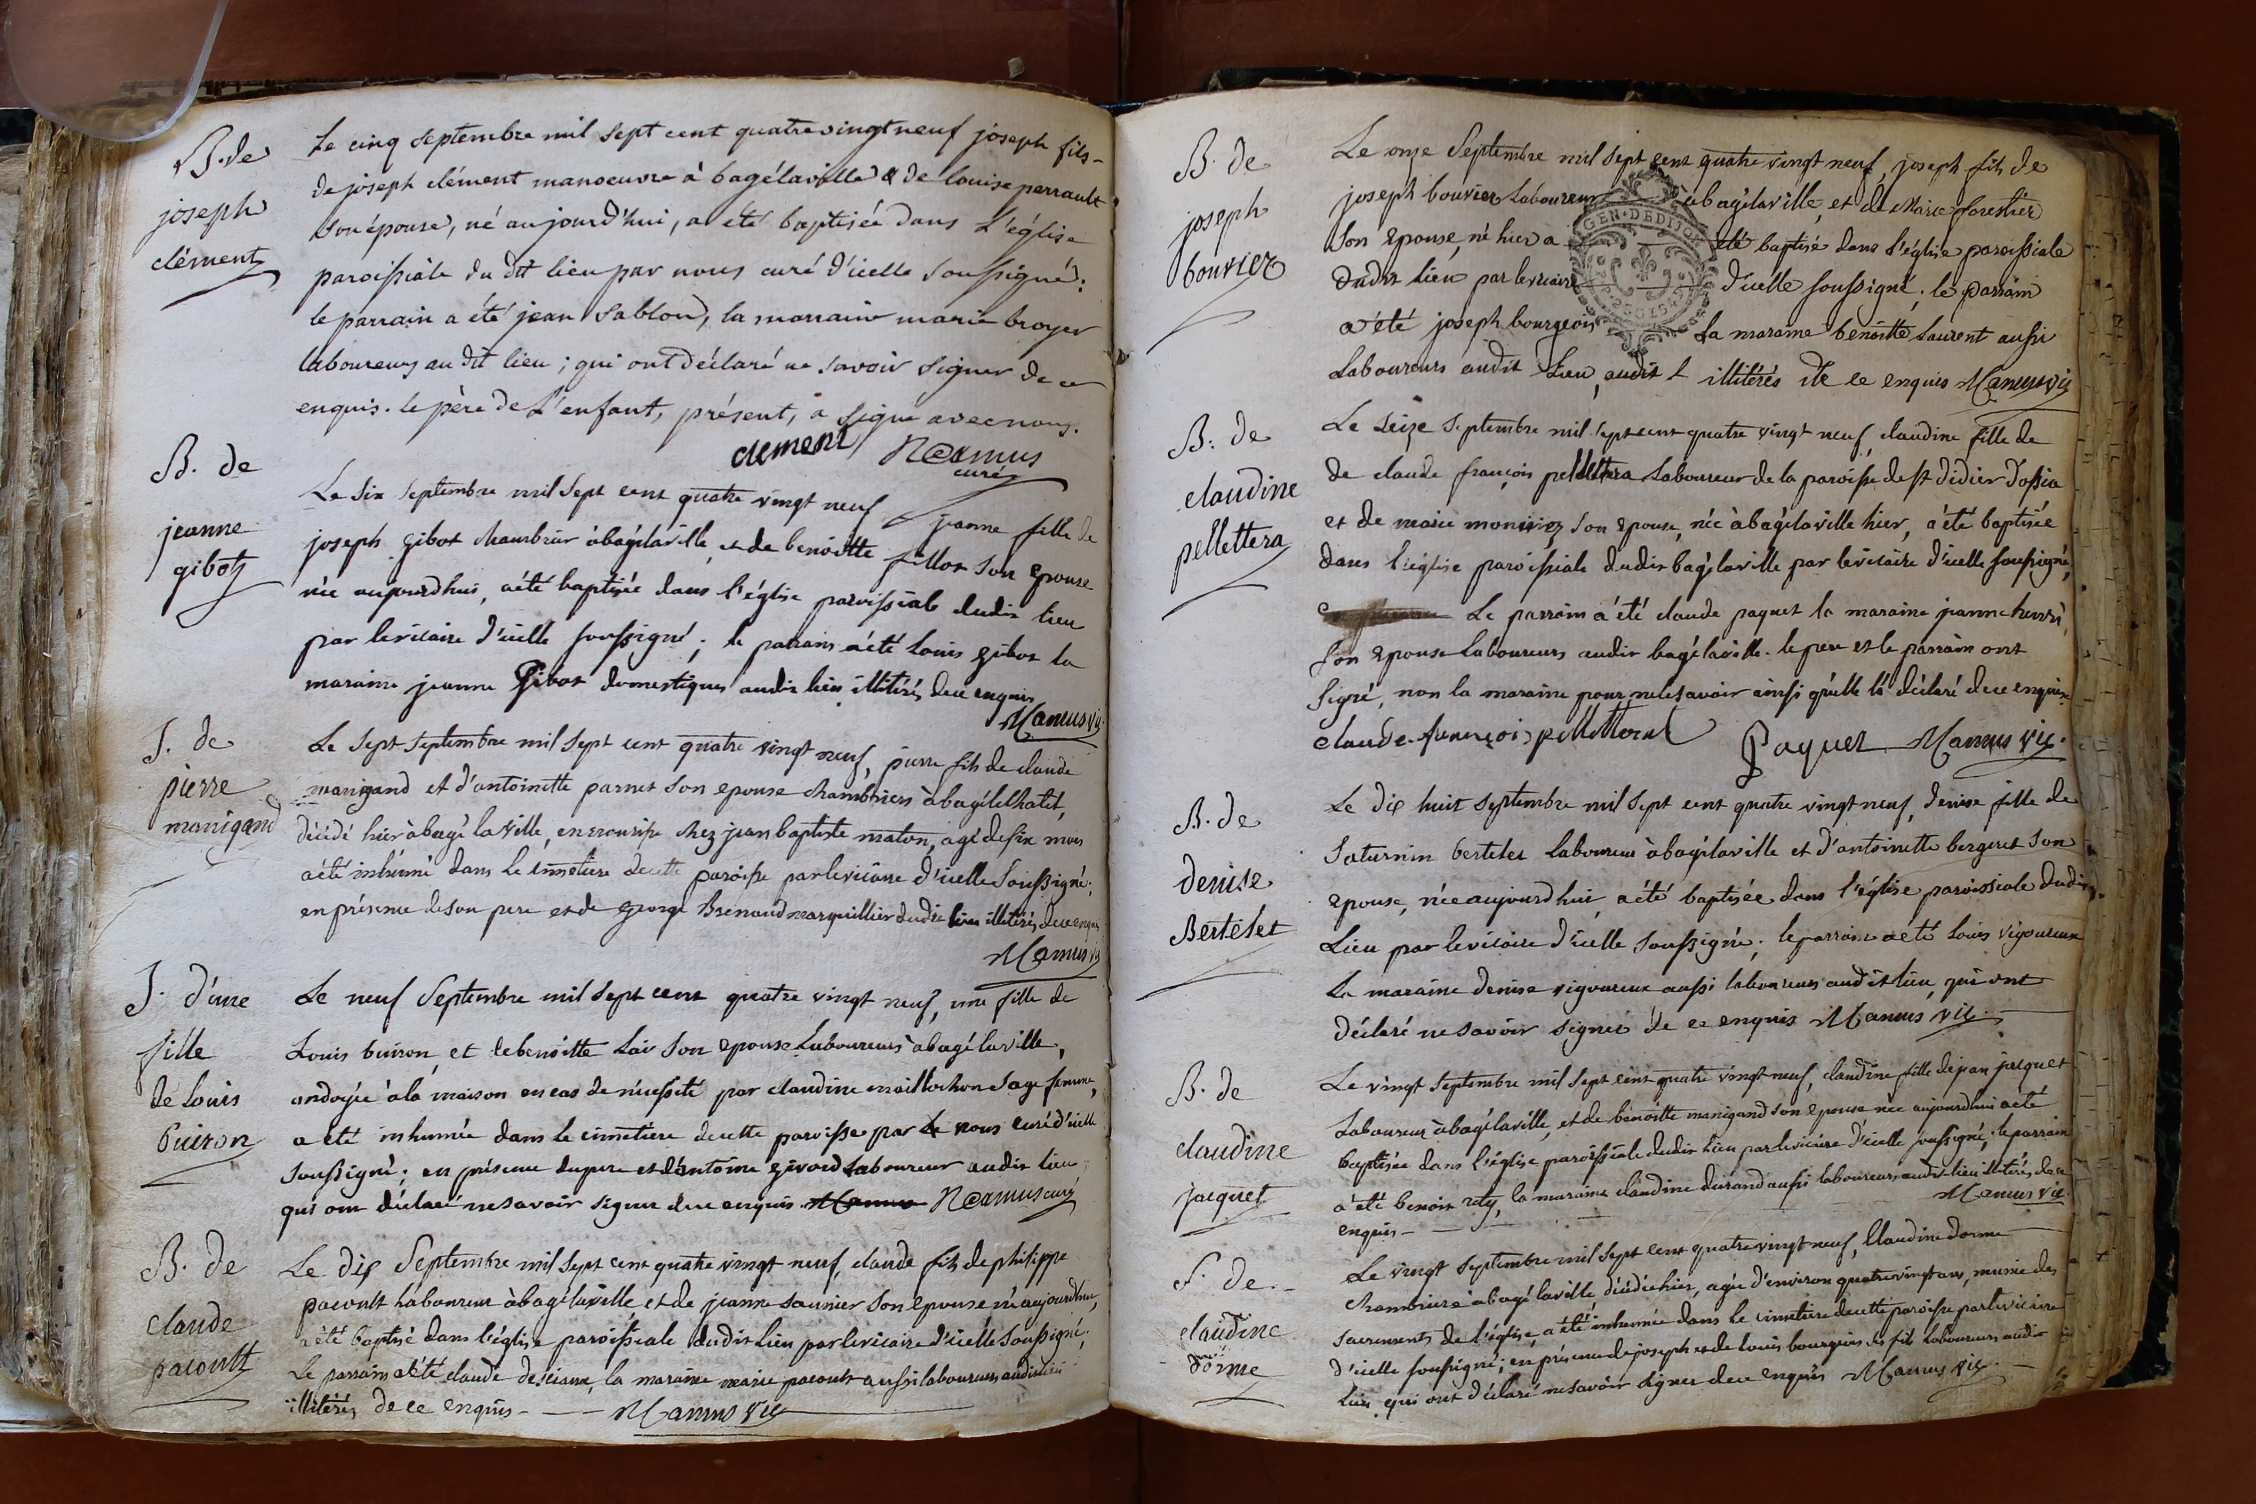 B. de
joseph
clément
Le cinq septembre mil sept cent quatre vingt neuf joseph fils
de joseph clément manoeuvre à bagélaville & de louise perrault
son épouse, né aujourd'hui, a été baptisée dans L'église
paroissiale du dit lieu par nous curé d'icelle soussigné;
le parrain a été jean sablon, la marraine marie broyer
laboureurs au dit lieu; qui ont déclaré ne savoir signer de ce
enquis. le père de L'enfant, présent, a signé avec nous.
clement Namus
curé
B. de
jeanne
gibot
Le six septembre mil sept cent quatre vingt neuf jeanne fille de
joseph gibot chambrier à bagélaville et de benoitte fillon son epouse
née aujourd'hui, a été baptisée dans l'église paroissiale dudit lieu
par le vicaire d'icelle soussigné; le parrain a été louis gibot la
maraine jeanne Gibot domestiques audit lieu illitérés de ce enquis
Mamus vic.
J. de
pierre
manigand
Le sept septembre mil sept cent quatre vingt neuf, pierre fils de claude
manigand et d'antoinette parnet son epouse chambriers à bagélechatel,
décédé hier à bagé la ville, en nourisse chez jean baptiste maton, agé de six mois
a été inhumé dans le cimetiere de cette paroisse par le vicaire d'icelle soussigné;
en présence de son pere et de george Brenaud marguillier dudit lieu illitérés de ce enquis
Mamus vic
J. d'une
fille
de louis
buiron
Le neuf Septembre mil sept cent quatre vingt neuf, une fille de
Louis buiron et de benoitte Lair son epouse Laboureurs à bagé la ville,
andoyée à la maison en cas de nécessité par claudine maillochon sage femme,
a été inhumée dans le cimetiere de cette paroisse par nous curé d'icelle
soussigné; en présence du pere et d'antoine givord Laboureur audit lieu
qui ont déclaré ne savoir signer de ce enquis Mamus Namus curé
B. de
claude
pacoult
Le dix Septembre mil sept cent quatre vingt neuf, claude fils de philippe
pacoult laboureur à bagélaville et de jeanne saunier son epouse né aujourd'hui,
a été baptisé dans l'église paroissiale dudit lieu par le vicaire d'icelle soussigné;
Le parrain a été claude la maraine marie pacoult aussi laboureurs audit lieu
illitérés de ce enquis Mamus vic
B. de
joseph
bouvier
Le onze Septembre mil sept cent quatre vingt neuf, joseph fils de
joseph bouvier Laboureur à bagélaville, et de Marie forestier
son epouse, né hier a été baptisé dans l'église paroissiale
dudit lieu par le vicaire d'icelle soussigné; le parrain
a été joseph bourgeois La maraine benoitte Laurent aussi
Laboureurs audit Lieu audit illitérés de ce enquis Mamus vic
GEN. DE DIJON
B. de
claudine
pellettera
Le seize septembre mil sept cent quatre vingt neuf claudine fille de
de claude françois pellettera Laboureur de la paroisse de st didier
et de marie son epouse, née à bagélaville hier, a été baptisée
dans l'église paroissiale dudit bagélaville par le vicaire d'icelle soussigné,
Le parrain a été claude paquet la maraine jeanne
son epouse Laboureurs audit bagélaville. le pere et le parrain ont
signé, non la maraine pour ne le savoir ainsi qu'elle l'a déclaré de ce enquise
claude françois Paquet Mamus vic.
B. de
denise
Bertelet
Le dix huit septembre mil sept cent quatre vingt neuf, denise fille de
saturnin bertelet laboureur à bagélaville et d'antoinette bergeret son
epouse, née aujourd'hui, a été baptisée dans l'église paroissiale dudit
Lieu par le vicaire d'icelle soussigné; le parrain a été louis vigoureux
La maraine denise vigoureux aussi laboureurs audit lieu, qui ont
déclaré ne savoir signer de ce enquis Mamus vic.
B. de
claudine
jacquet
Le vingt septembre mil sept cent quatre vingt neuf, claudine fille de jean jacquet
Laboureur à bagélaville, et de benoitte manigand son epouse née aujourd'hui a été
baptisée dans l'église paroissiale dudit lieu par le vicaire d'icelle soussigné, le parrain
a été benoit rety, la maraine claudine durand aussi laboureurs audit lieu illitérés de ce
enquis Mamus vic.
S. de
claudine
dorme
Le vingt septembre mil sept cent quatre vingt neuf, Claudine dorme
chambriere à bagé laville décédée hier, agée d'environ quatre vingt ans, munie des
sacrements de l'église, a été inhumée dans le cimetiere de cette paroisse par le vicaire
d'icelle soussigné; en présence de joseph et de louis bourgeois ses fils laboureurs audit
Lieu qui ont déclaré ne savoir signer de ce enquis Mamus vic.